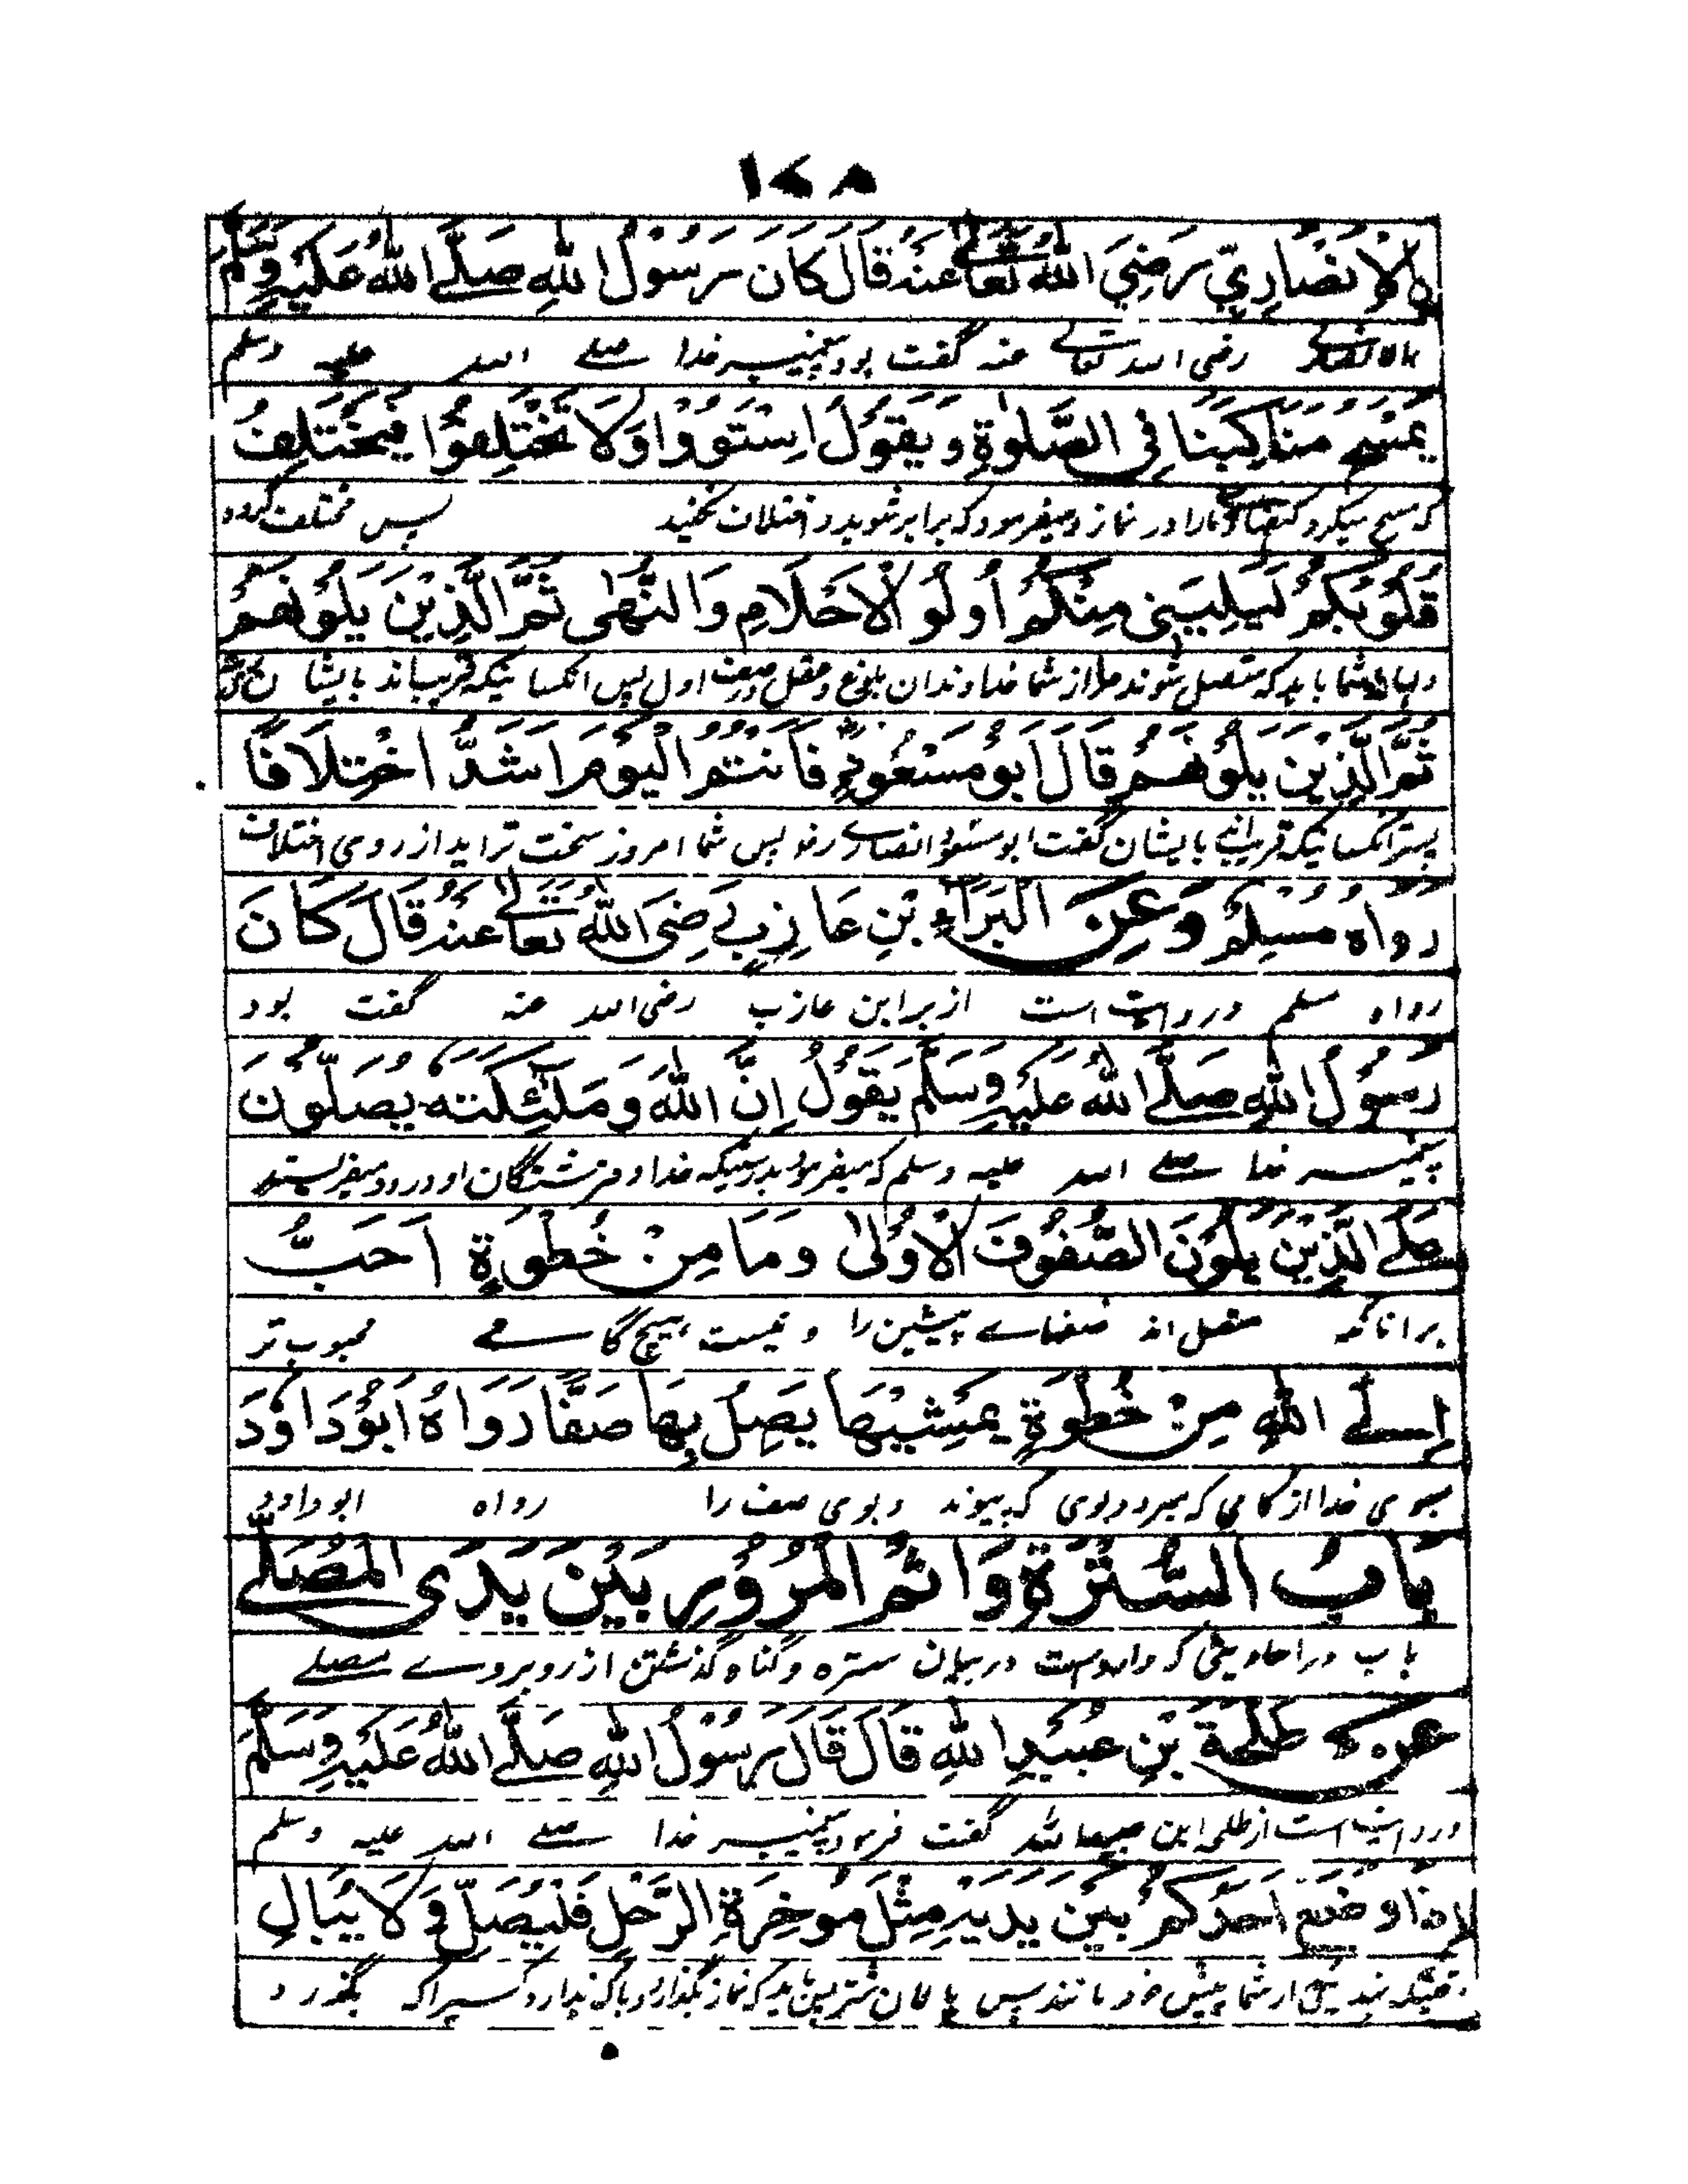 ١٤٨
الْاَنْصَارِيِّ رَضِيَ اللهُ تَعَالٰى عَنْهُ قَالَ كَانَ رَسُوْلُ اللهِ صَلَّى اللهُ عَلَيْهِ وَسَلَّمَ
رضی الله تعالے عنه گفت بود پیغمبر خدا صلے الله علیه وسلم
يَمْسَحُ مَنَاكِبَنَا فِى الصَّلٰوةِ وَيَقُوْلُ اِسْتَوُوْا وَلَا تَخْتَلِفُوْا فَيَخْتَلِفُ
که مسح میکرد مارا در نماز و میفرمود که برابر شوید و اختلاف نکنید پس مختلف گردد
قُلُوْبُكُمْ لِيَلِيَنِى مِنْكُمْ اُولُو الْاَحْلَامِ وَالنُّهٰى ثُمَّ الَّذِيْنَ يَلُوْنَهُمْ
شما باید که متصل شوند مرا از شما خداوندان بلوغ و عقل اول پس انکسانیکه قریب اند بایشان
ثُمَّ الَّذِيْنَ يَلُوْنَهُمْ قَالَ اَبُوْ مَسْعُوْدٍ فَاَنْتُمُ الْيَوْمَ اَشَدُّ اخْتِلَافًا
پستر انکسانیکه بایشان گفت ابو مسعود انصاری رض پس شما امروز سخت تراید از روی اختلاف
رواه مُسْلِمٌ وَعَنِ الْبَرَاءِ بْنِ عَازِبٍ رَضِىَ اللهُ تَعَالٰى عَنْهُ قَالَ كَانَ
رواه مسلم و روایت است از برا ابن عازب رضی الله عنه گفت بود
رَسُوْلُ اللهِ صَلَّى اللهُ عَلَيْهِ وَسَلَّمَ يَقُوْلُ اِنَّ اللهَ وَمَلٰٓئِكَتَهٗ يُصَلُّوْنَ
پیغمبر خدا صلے الله علیه وسلم که میفرمود بدرستیکه خدا و فرشتگان او درود میفرستند
عَلَى الَّذِيْنَ يَلُوْنَ الصُّفُوْفَ الْاُوْلٰى وَمَا مِنْ خُطْوَةٍ اَحَبُّ
بر انانکه متصل اند صفهاے پیشین را و نیست هیچ گامے محبوب تر
اِلَى اللهِ مِنْ خُطْوَةٍ يَمْشِيْهَا يَصِلُ بِهَا صَفًّا رَوَاهُ اَبُوْدَاوٗدَ
بسوی خدا از گامی که بپیوند و بوی صف را رواه ابوداود
بَابُ السُّتْرَةِ وَاثْمِ الْمُرُوْرِ بَيْنَ يَدَىِ الْمُصَلِّى
باب در احادیثی که در بیان ستره و گناه گذشتن از روبروے مصلے
عن طَلْحَةَ بْنِ عُبَيْدِ اللهِ قَالَ قَالَ رَسُوْلُ اللهِ صَلَّى اللهُ عَلَيْهِ وَسَلَّمَ
و روایت است از طلحه ابن عبید الله گفت فرمود پیغمبر خدا صلے الله علیه وسلم
اِذَا وَضَعَ اَحَدُكُمْ بَيْنَ يَدَيْهِ مِثْلَ مُوْخِرَةِ الرَّحْلِ فَلْيُصَلِّ وَلَا يُبَالِ
وقتیکه نهد یکی از شما پیش خود مانند پس پالان شتر پس باید که نماز بگذارد و باک ندارد بگذرد